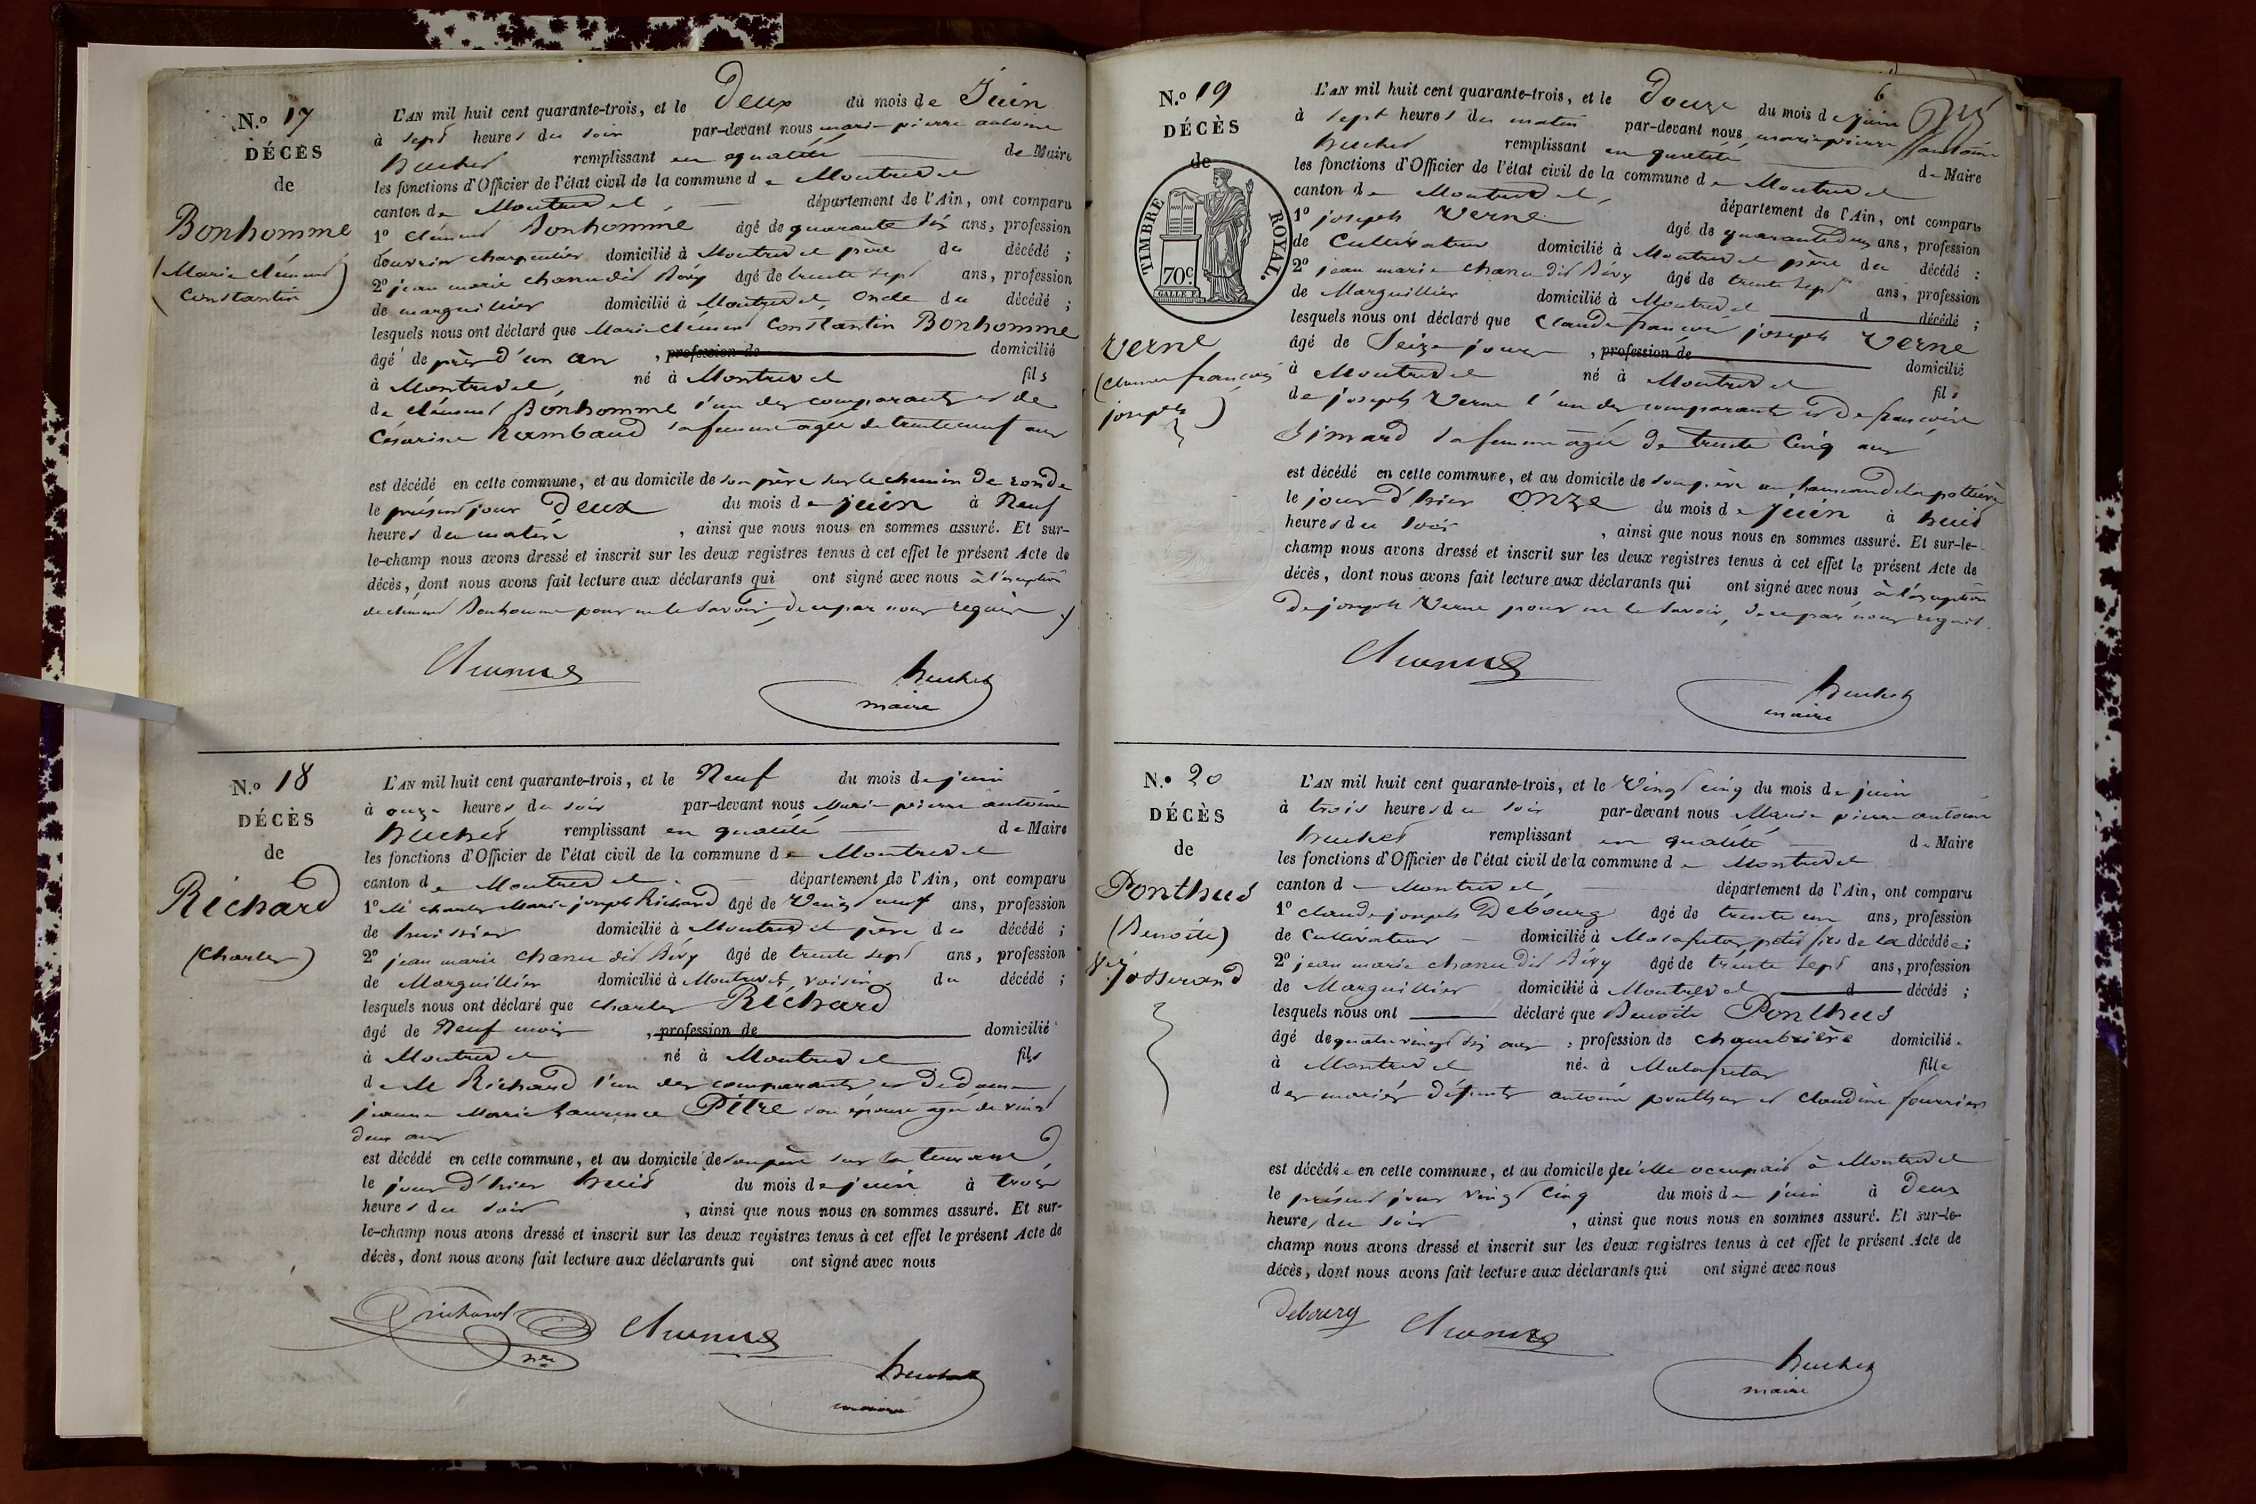 N.º 17
DÉCÈS
de
Bonhomme
(Marie Clément
Constantin)
L'AN mil huit cent quarante-trois, et le Deux du mois de Juin
à sept heures du soir par-devant nous marie pierre antoine
huchet remplissant en qualité de Maire
les fonctions d'Officier de l'état civil de la commune de Montrevel
canton de Montrevel, département de l'Ain, ont comparu
1º Clément Bonhomme âgé de quarante six ans, profession
d'ouvrier charpentier domicilié à Montrevel père du décédé ;
2º jean marie chanu dit Bévy âgé de trente sept ans, profession
de marguillier domicilié à Montrevel, oncle du décédé ;
lesquels nous ont déclaré que Marie Clément Constantin Bonhomme
âgé de près d'un an , profession de domicilié
à Montrevel, né à Montrevel fils
de Clément Bonhomme l'un des comparants et de
Césarine Rambaud sa femme agée de trente neuf ans
est décédé en cette commune, et au domicile de son père sur le chemin de ronde
le présent jour Deux du mois de juin à Neuf
heures du matin , ainsi que nous nous en sommes assuré. Et sur-
le-champ nous avons dressé et inscrit sur les deux registres tenus à cet effet le présent Acte de
décès, dont nous avons fait lecture aux déclarants qui ont signé avec nous à l'exception
de clément Bonhomme pour ne le savoir, de ce par nous requis
Chanu
huchet
maire
N.º 18
DÉCÈS
de
Richard
(Charles)
L'AN mil huit cent quarante-trois, et le Neuf du mois de juin
à onze heures du soir par-devant nous Marie pierre antoine
huchet remplissant en qualité de Maire
les fonctions d'Officier de l'état civil de la commune de Montrevel
canton de Montrevel. département de l'Ain, ont comparu
1º Mr charles Marie joseph Richard âgé de Vingt neuf ans, profession
de huissier domicilié à Montrevel père du décédé ;
2º jean marie chanu dit Bévy âgé de trente sept ans, profession
de Marguillier domicilié à Montrevel, voisin du décédé ;
lesquels nous ont déclaré que Charles Richard
âgé de Neuf mois , profession de domicilié
à Montrevel né à Montrevel fils
de M Richard l'un des comparants et De Dame
jeanne Marie Laurence Pitre son épouse agée de vingt
deux ans
est décédé en cette commune, et au domicile de son père sur la terrasse
le jour d'hier huit du mois de juin à trois
heures du soir , ainsi que nous nous en sommes assuré. Et sur-
le-champ nous avons dressé et inscrit sur les deux registres tenus à cet effet le présent Acte de
décès, dont nous avons fait lecture aux déclarants qui ont signé avec nous
richard
Chanu
huchet
maire
6
N.º 19
DÉCÈS
de
TIMBRE ROYAL.
70c.
Verne
(Claude françois
joseph)
L'AN mil huit cent quarante-trois, et le Douze du mois de juin
à sept heures du matin par-devant nous marie pierre antoine
huchet remplissant en qualité de Maire
les fonctions d'Officier de l'état civil de la commune de Montrevel
canton de Montrevel, département de l'Ain, ont comparu
1º joseph Verne âgé de quarante deux ans, profession
de Cultivateur domicilié à Montrevel père du décédé ;
2º jean marie chanu dit Bévy âgé de trente sept ans, profession
de Marguillier domicilié à Montrevel d décédé ;
lesquels nous ont déclaré que Claude françois joseph Verne
âgé de Seize jours , profession de domicilié
à Montrevel né à Montrevel fils
de joseph Verne l'un des comparants et De françoise
Simard sa femme agée de trente Cinq ans
est décédé en cette commune, et au domicile de son père au hameau de la potière
le jour d'hier ONZE du mois de juin à huit
heures du soir , ainsi que nous nous en sommes assuré. Et sur-le-
champ nous avons dressé et inscrit sur les deux registres tenus à cet effet le présent Acte de
décès, dont nous avons fait lecture aux déclarants qui ont signé avec nous à l'exception
De joseph Verne pour ne le savoir, de ce par nous requis.
Chanu
huchet
maire
N.º 20
DÉCÈS
de
Ponthus
(Benoite)
Josserand
L'AN mil huit cent quarante-trois, et le Vingt cinq du mois de juin
à trois heures du soir par-devant nous Marie pierre antoine
huchet remplissant en qualité de Maire
les fonctions d'Officier de l'état civil de la commune de Montrevel
canton de Montrevel, département de l'Ain, ont comparu
1º Claude joseph Debourg âgé de trente un ans, profession
de Cultivateur domicilié à Malafretaz petit fils de la décédée ;
2º jean marie chanu dit Bévy âgé de trente sept ans, profession
de Marguillier domicilié à Montrevel d décédé ;
lesquels nous ont déclaré que Benoite Ponthus
âgé de quatre vingt six ans , profession de chambrière domiciliée
à Montrevel née à Malafretaz fille
des mariés défunts antoine ponthus et Claudine fourrier
est décédée en cette commune, et au domicile qu'elle occupait à Montrevel
le présent jour vingt Cinq du mois de juin à Deux
heures du soir , ainsi que nous nous en sommes assuré. Et sur-le-
champ nous avons dressé et inscrit sur les deux registres tenus à cet effet le présent Acte de
décès, dont nous avons fait lecture aux déclarants qui ont signé avec nous
Debourg
Chanu
huchet
maire